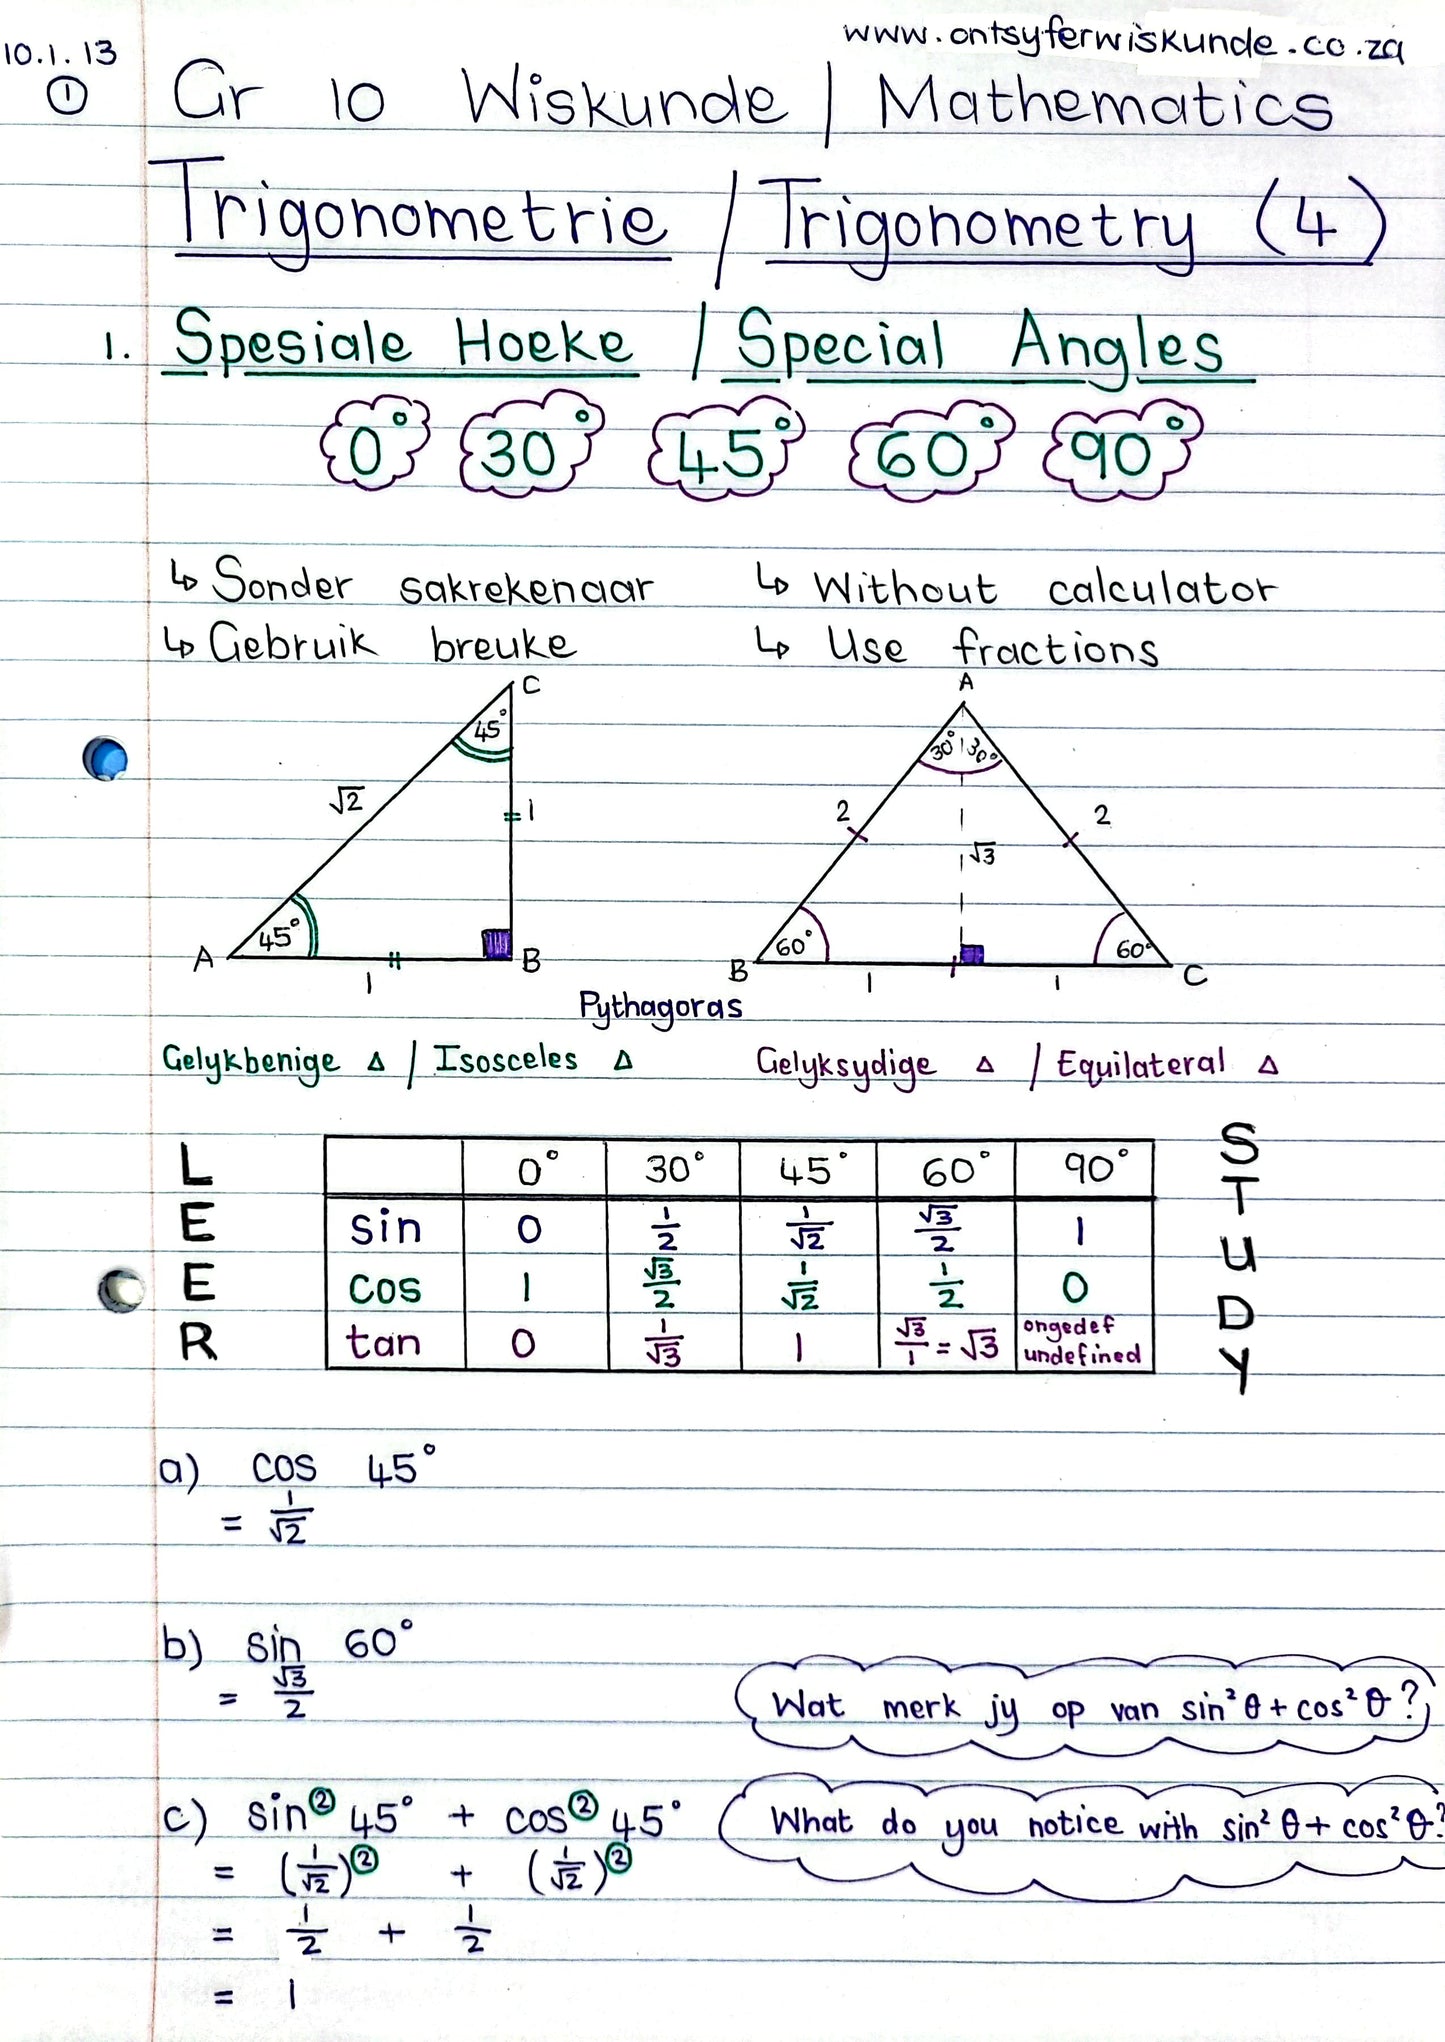 www.ontsyferwiskunde.co.za
10.1.13
① Gr 10 Wiskunde | Mathematics
Trigonometrie / Trigonometry (4)
1. Spesiale Hoeke / Special Angles
0° 30° 45° 60° 90°
↳ Sonder sakrekenaar ↳ Without calculator
↳ Gebruik breuke ↳ Use fractions
C A
45° 30° 30°
√2 1 2 2
√3
45° 60° 60°
A B B C
1 1 1
Pythagoras
Gelykbenige Δ / Isosceles Δ Gelyksydige Δ / Equilateral Δ
LEER
STUDY
0° 30° 45° 60° 90°
sin 0 1/2 1/√2 √3/2 1
cos 1 √3/2 1/√2 1/2 0
tan 0 1/√3 1 √3/1 = √3 ongedef undefined
a) cos 45°
= 1/√2
b) sin 60°
= √3/2
Wat merk jy op van sin²θ + cos²θ?
c) sin² 45° + cos² 45°
What do you notice with sin²θ + cos²θ?
= (1/√2)² + (1/√2)²
= 1/2 + 1/2
= 1